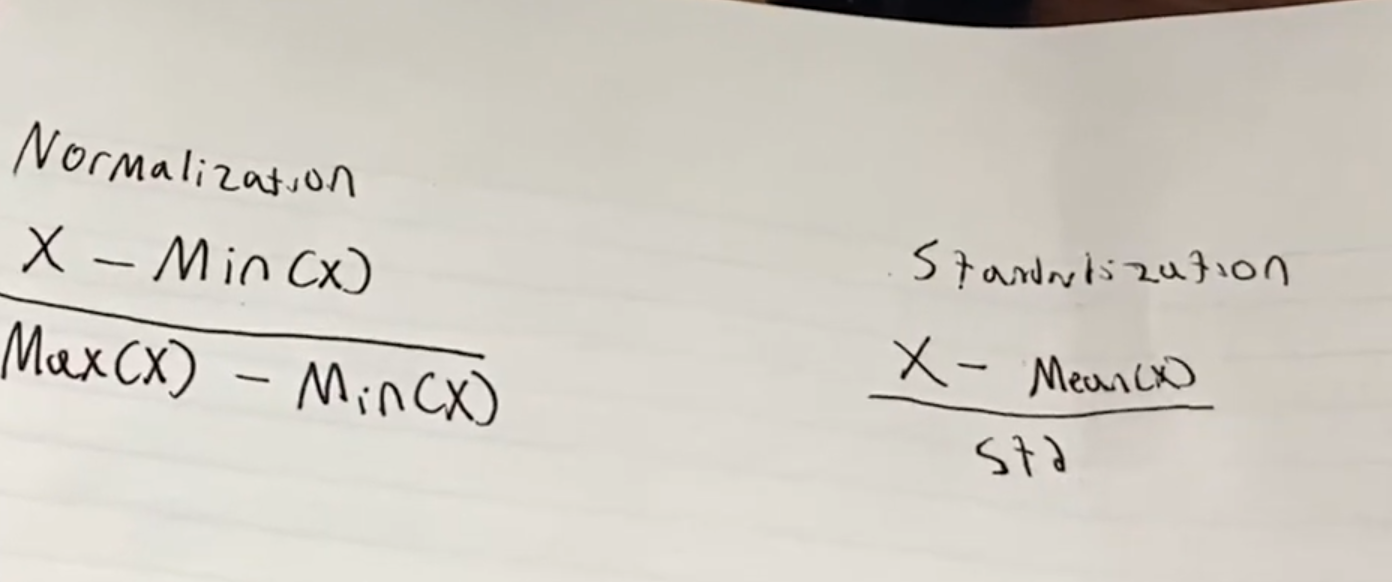 Normalization
X - Min(X)
Max(X) - Min(X)
Standardization
X - Mean(X)
std